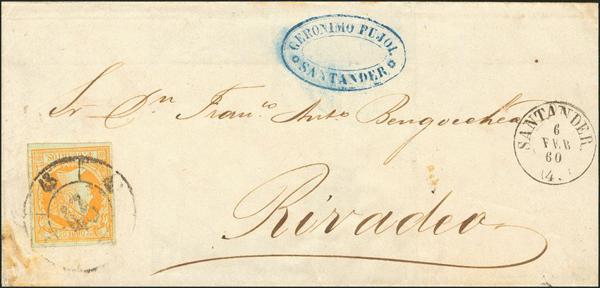 GERONIMO PUJOL
SANTANDER
Sr. Dn. Franco. Anto. Bengochea
SANTANDER.
6
FEB
60
(4.)
Rivadeo
43